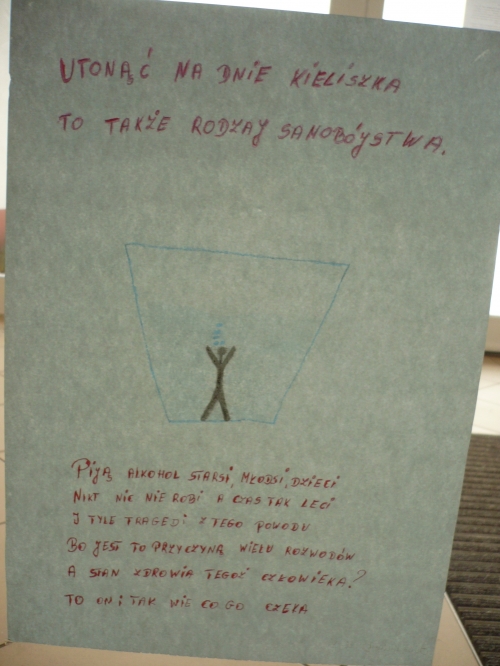 UTONĄĆ NA DNIE KIELISZKA
TO TAKŻE RODZAJ SAMOBÓJSTWA.
PIJĄ ALKOHOL STARSI, MŁODSI, DZIECI
NIKT NIC NIE ROBI A CZAS TAK LECI
I TYLE TRAGEDI Z TEGO POWODU
BO JEST TO PRZYCZYNĄ WIELU ROZWODÓW
A STAN ZDROWIA TEGOŻ CZŁOWIEKA?
TO ON I TAK WIE CO GO CZEKA